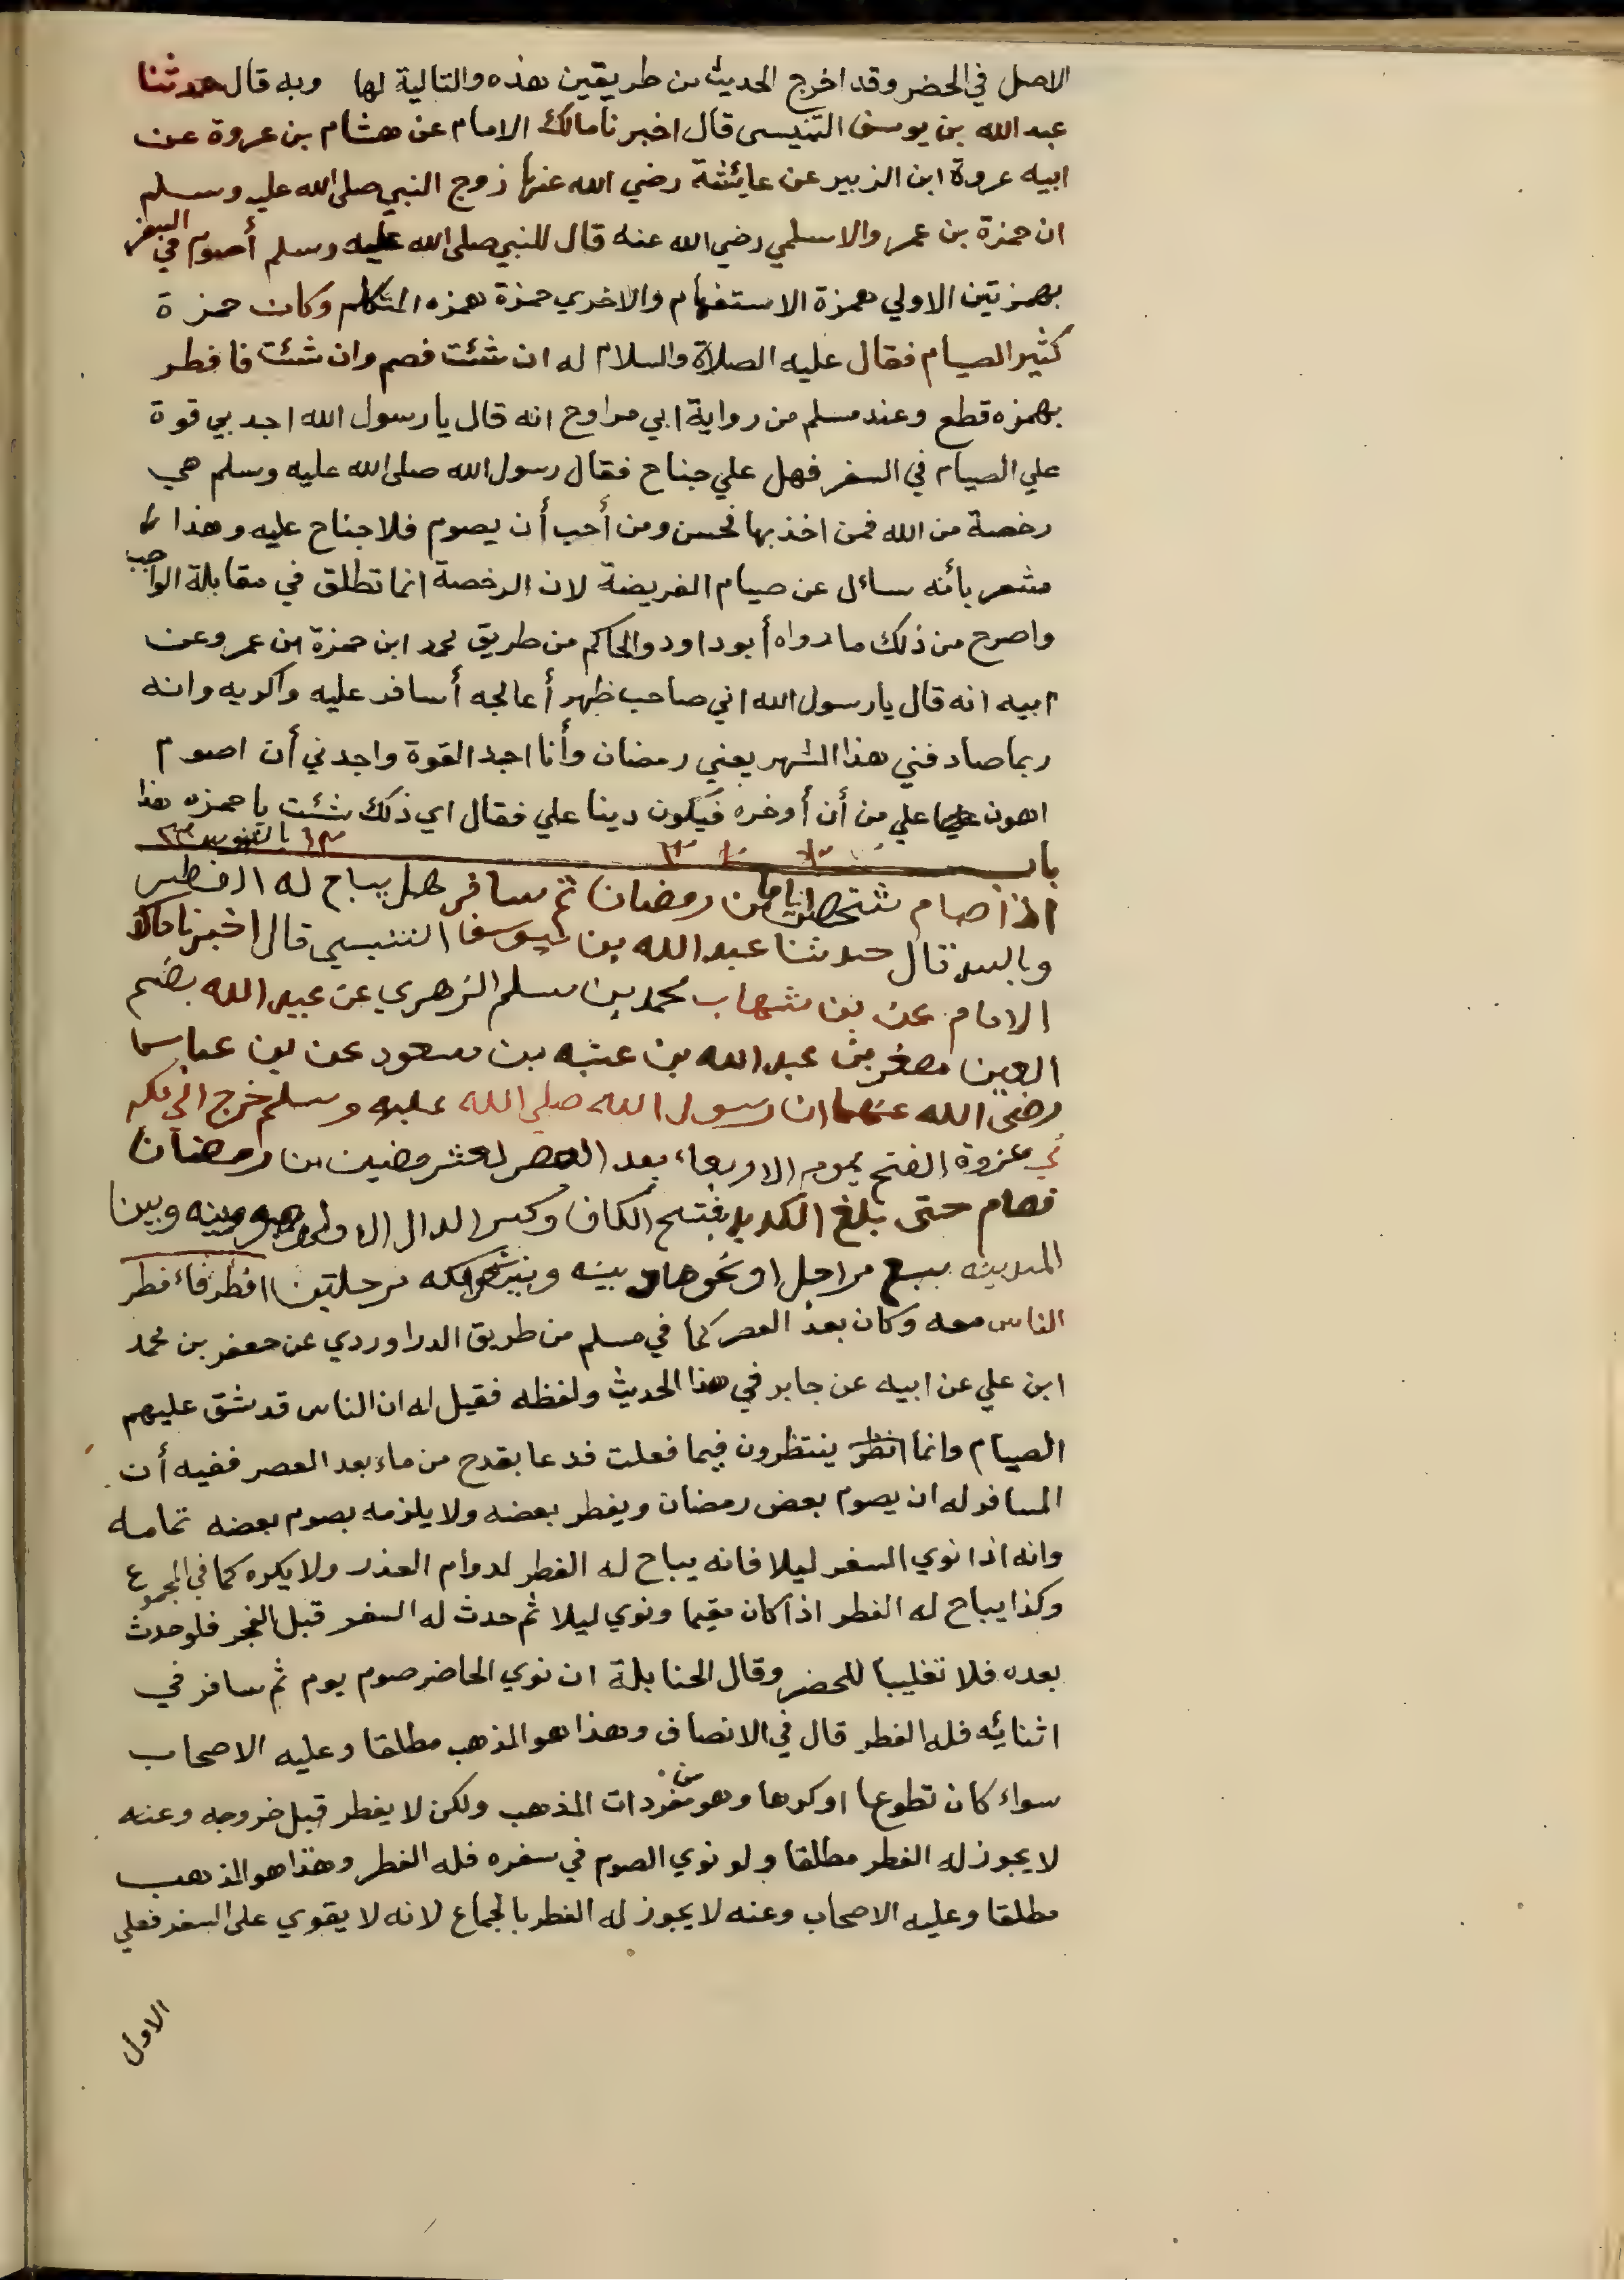 الاصل في الحضر وقد اخرج الحديث من طريقين هذه والتالية لها وبه قال حدثنا
عبد الله بن يوسف التنيسى قال اخبرنا مالك الامام عن هشام بن عروة عن
ابيه عروة ابن الزبير عن عايئشة رضي الله عنها زوج النبي صلى الله عليه وسلم
ان حمزة بن عمرو الاسلمي رضي الله عنه قال للنبي صلى الله عليه وسلم أصوم في السفر
بهمزتين الاولي همزة الاستفهام والاخري حمزة همزه المتكلم وكان حمزة
كثير الصيام فقال عليه الصلاة والسلام له ان شئت فصم وان شئت فافطر
بهمزه قطع وعند مسلم من رواية ابي مراوح انه قال يا رسول الله اجد بي قوة
علي الصيام في السفر فهل علي جناح فقال رسول الله صلى الله عليه وسلم هي
رخصة من الله فمن اخذ بها فحسن ومن أحب أن يصوم فلا جناح عليه وهذا
مشعر بأنه سائل عن صيام الفريضة لان الرخصة انما تطلق في مقابلة الواجب
واصرح من ذلك ما رواه أبو داود والحاكم من طريق محمد ابن حمزة ابن عمرو عن
ابيه انه قال يا رسول الله اني صاحب ظهر أعالجه أسافر عليه واكريه وانه
ربما صادفني هذا الشهر يعني رمضان وأنا اجد القوة واجدني أن اصوم
اهون علي من أن أوخره فيكون دينا علي فقال اي ذلك شئت يا حمزه هذا
باب بالتنوين
اذا صام شخص اياما من رمضان ثم سافر هل يباح له الفطر
وبالسند قال حدثنا عبد الله بن يوسف التنيسي قال اخبرنا مالك
الامام عن بن شهاب محمد بن مسلم الزهري عن عبيد الله بضم
العين مصغر بن عبد الله بن عتبه بن مسعود عن بن عباس
رضي الله عنهما ان رسول الله صلي الله عليه وسلم خرج الي مكه
في غزوة الفتح يوم الاربعاء بعد العصر لعشر مضين من رمضان
فصام حتى بلغ الكديد بفتح الكاف وكسر الدال الاولى وهو بينه وبين
المدينه سبع مراحل او نحوها وبينه وبين مكه مرحلتين افطر فاءفطر
الناس معه وكان بعد العصر كما في مسلم من طريق الدراوردي عن جعفر بن محمد
ابن علي عن ابيه عن جابر في هذا الحديث ولفظه فقيل له ان الناس قد شق عليهم
الصيام وانما انظر ينتظرون فيما فعلت فدعا بقدح من ماء بعد العصر ففيه أن
المسافر له ان يصوم بعض رمضان ويفطر بعضه ولا يلزمه بصوم بعضه تمامه
وانه اذا نوي السفر ليلا فانه يباح له الفطر لدوام العذر ولا يكره كما في المجموع
وكذا يباح له الفطر اذا كان مقيما ونوي ليلا ثم حدث له السفر قبل الفجر فلو حدث
بعده فلا تغليبا للحضر وقال الحنابلة ان نوي الحاضر صوم يوم ثم سافر في
اثنائه فله الفطر قال في الانصاف وهذا هو المذهب مطلقا وعليه الاصحاب
سواء كان تطوعا اوكرها وهو من مفردات المذهب ولكن لا يفطر قبل خروجه وعنه
لا يجوز له الفطر مطلقا ولو نوي الصوم في سفره فله الفطر وهذا هو المذهب
مطلقا وعليه الاصحاب وعنه لا يجوز له الفطر بالجماع لانه لا يقوي على السفر فعلي
الاول